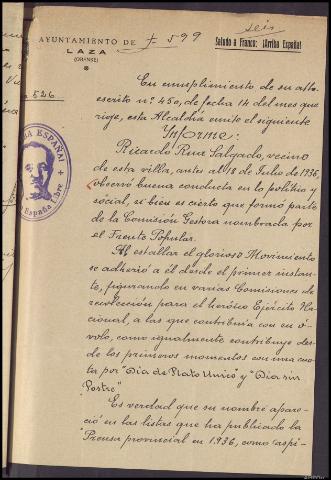 seis
f 599
AYUNTAMIENTO DE
LAZA
(ORENSE)
Saludo a Franco: ¡Arriba España!
526
En cumplimiento de su atto.
escrito nº. 450, de fecha 14 del mes que
rige, esta Alcaldía emite el siguiente
Informe:
Ricardo Rua Salgado, vecino
de esta villa, antes del 18 de Julio de 1936,
observó buena conducta en lo político y
social, si bien es cierto que formó parte
de la Comisión Gestora nombrada por
el Frente Popular.
Al estallar el glorioso Movimiento
se adhirió a él desde el primer instan-
te, figurando en varias Comisiones de
recolección para el heróico Ejército Na-
cional, a las que contribuía con su ó-
volo, como igualmente contribuye des-
de los primeros momentos con una cuo-
ta por "Día de Plato Unico" y "Día sin
Postre"
Es verdad que su nombre apare-
ció en las listas que ha publicado la
Prensa provincial en 1.936, como aspi-
ESPAÑA!
España Libre